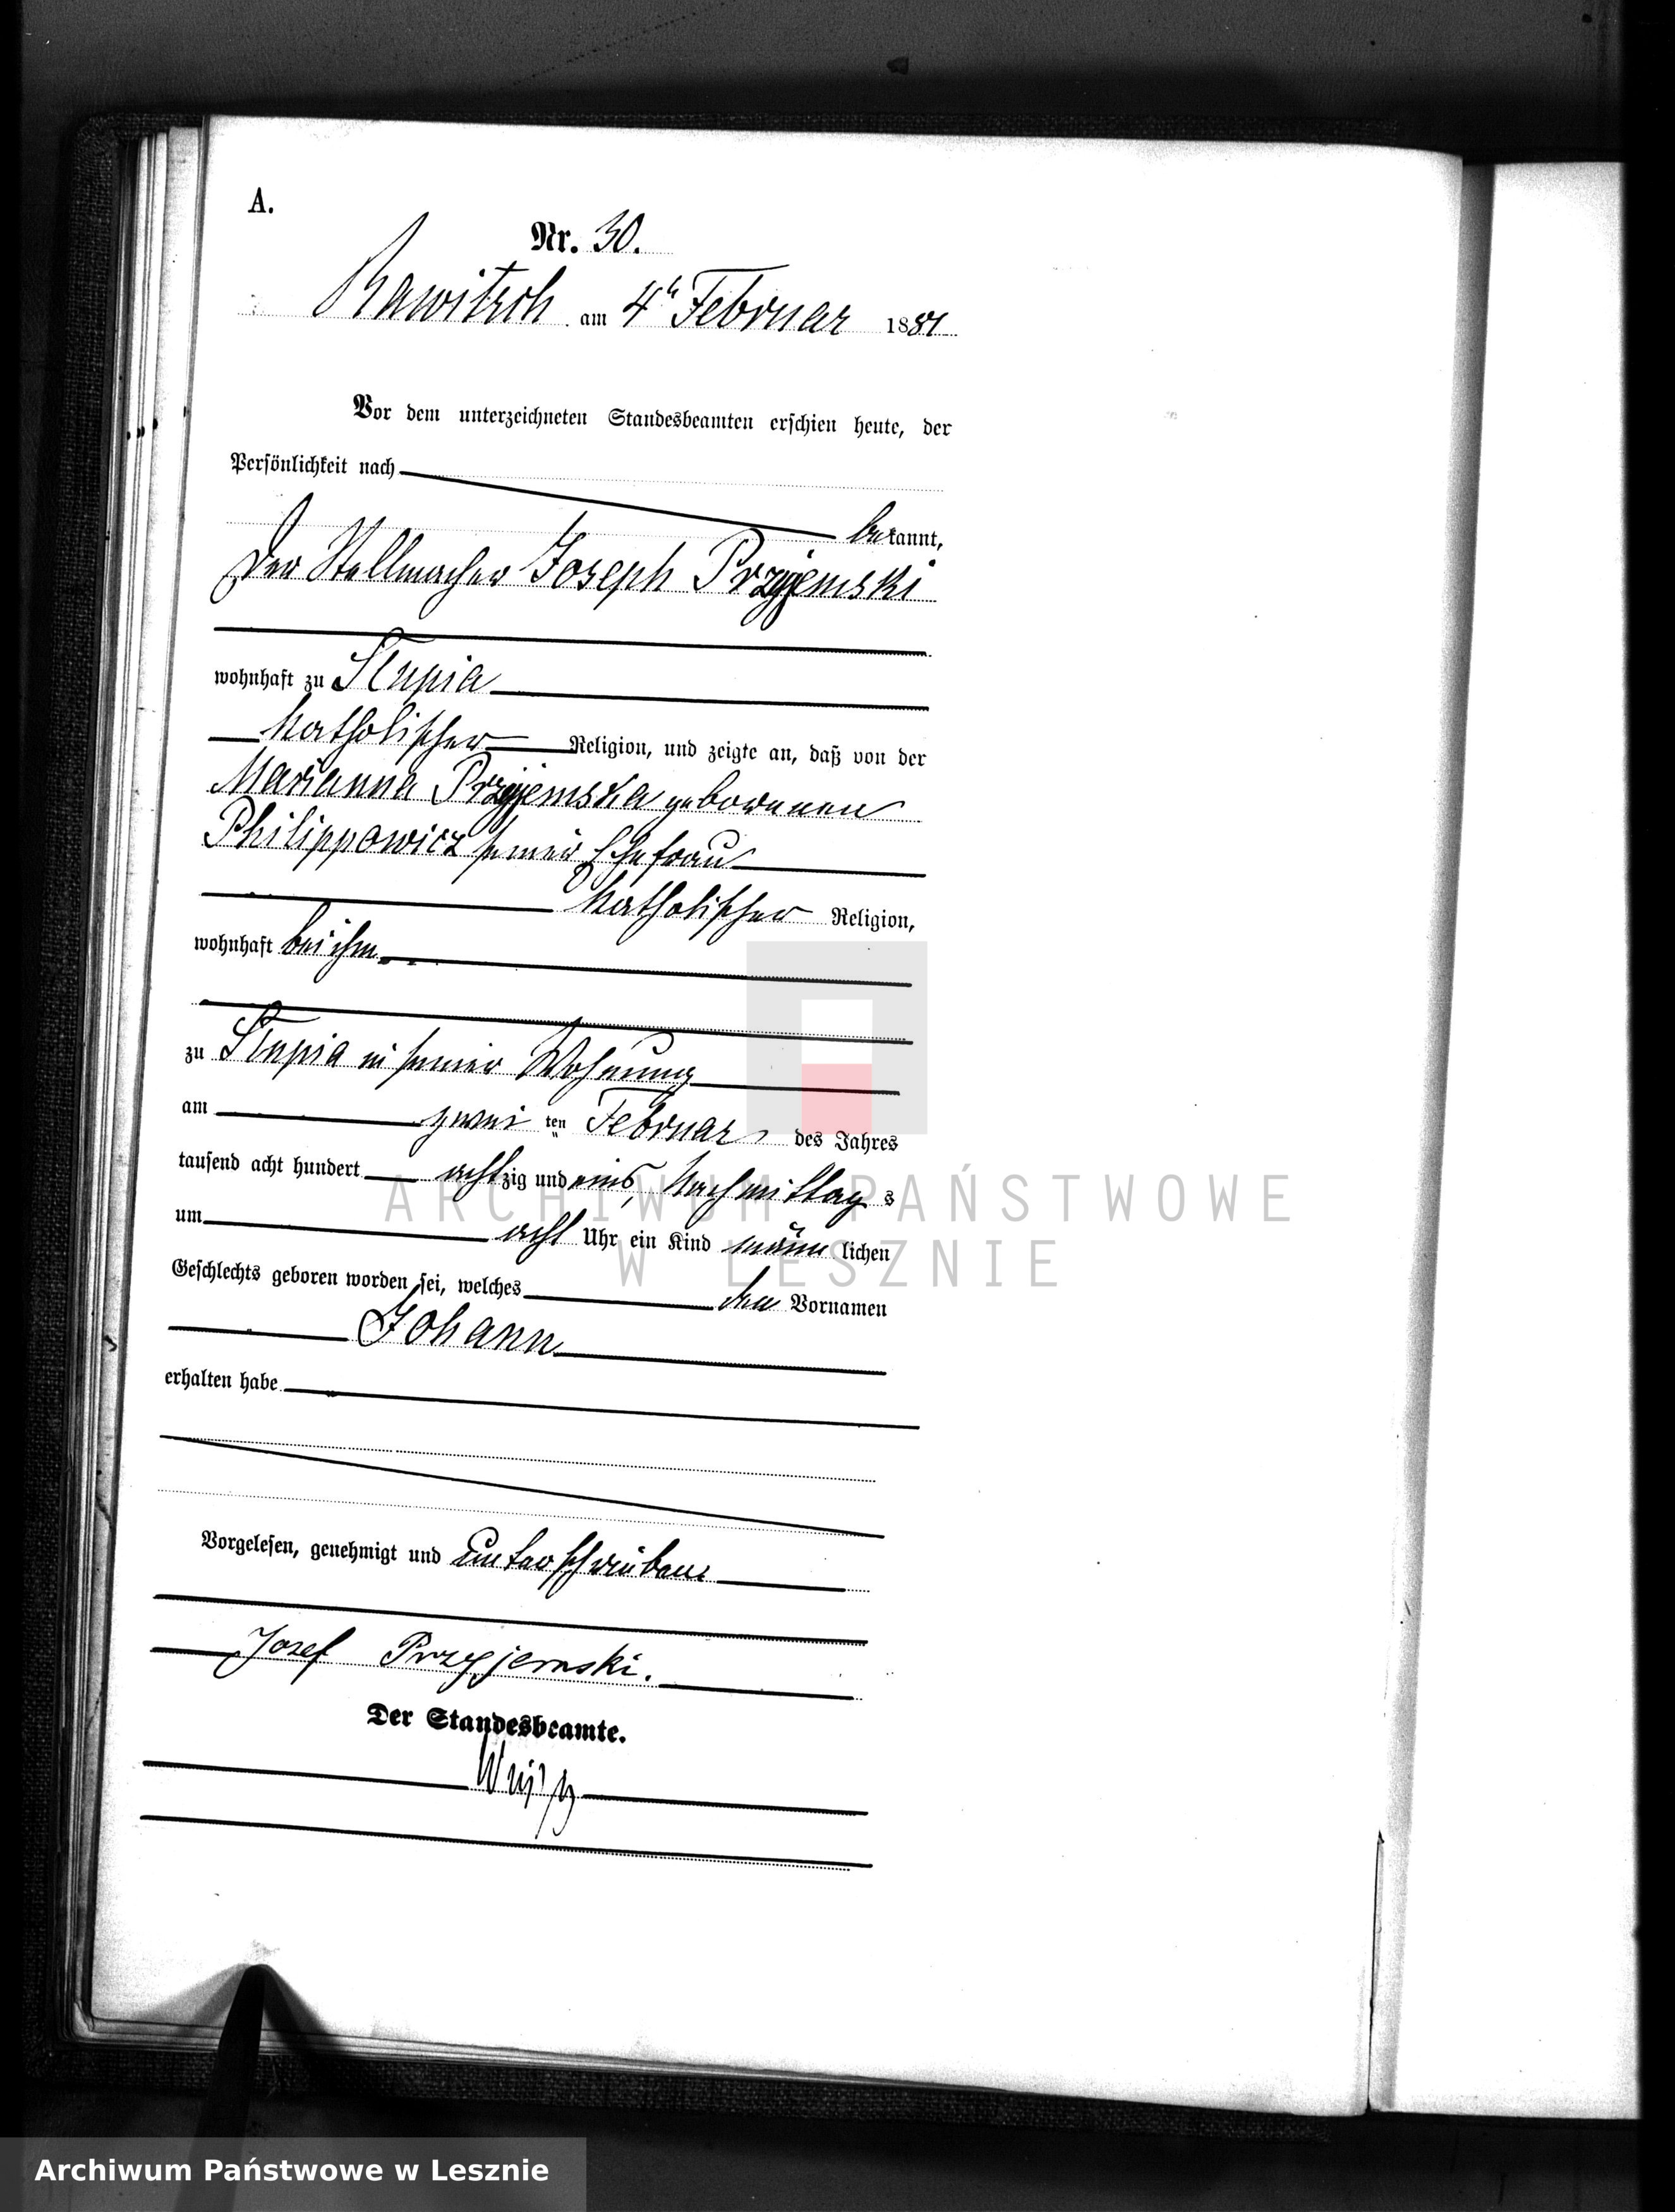 A.
Nr. 30.
Rawitsch am 4ten Februar 1881
Vor dem unterzeichneten Standesbeamten erschien heute, der
Persönlichkeit nach
bekannt,
der Stellmacher Joseph Przyjemski
wohnhaft zu Slupia
katholischer Religion, und zeigte an, daß von der
Marianna Przyjemska geborenen
Philippowicz seiner Ehefrau
katholischer Religion,
wohnhaft bei ihm
zu Slupia in seiner Wohnung
am zwei ten Februar des Jahres
tausend acht hundert achtzig und eins, Nachmittags
um acht Uhr ein Kind männlichen
Geschlechts geboren worden sei, welches den Vornamen
Johann
erhalten habe
Vorgelesen, genehmigt und unterschrieben
Josef Przyjemski.
Der Standesbeamte.
ARCHIWUM PAŃSTWOWE
W LESZNIE
Archiwum Państwowe w Lesznie